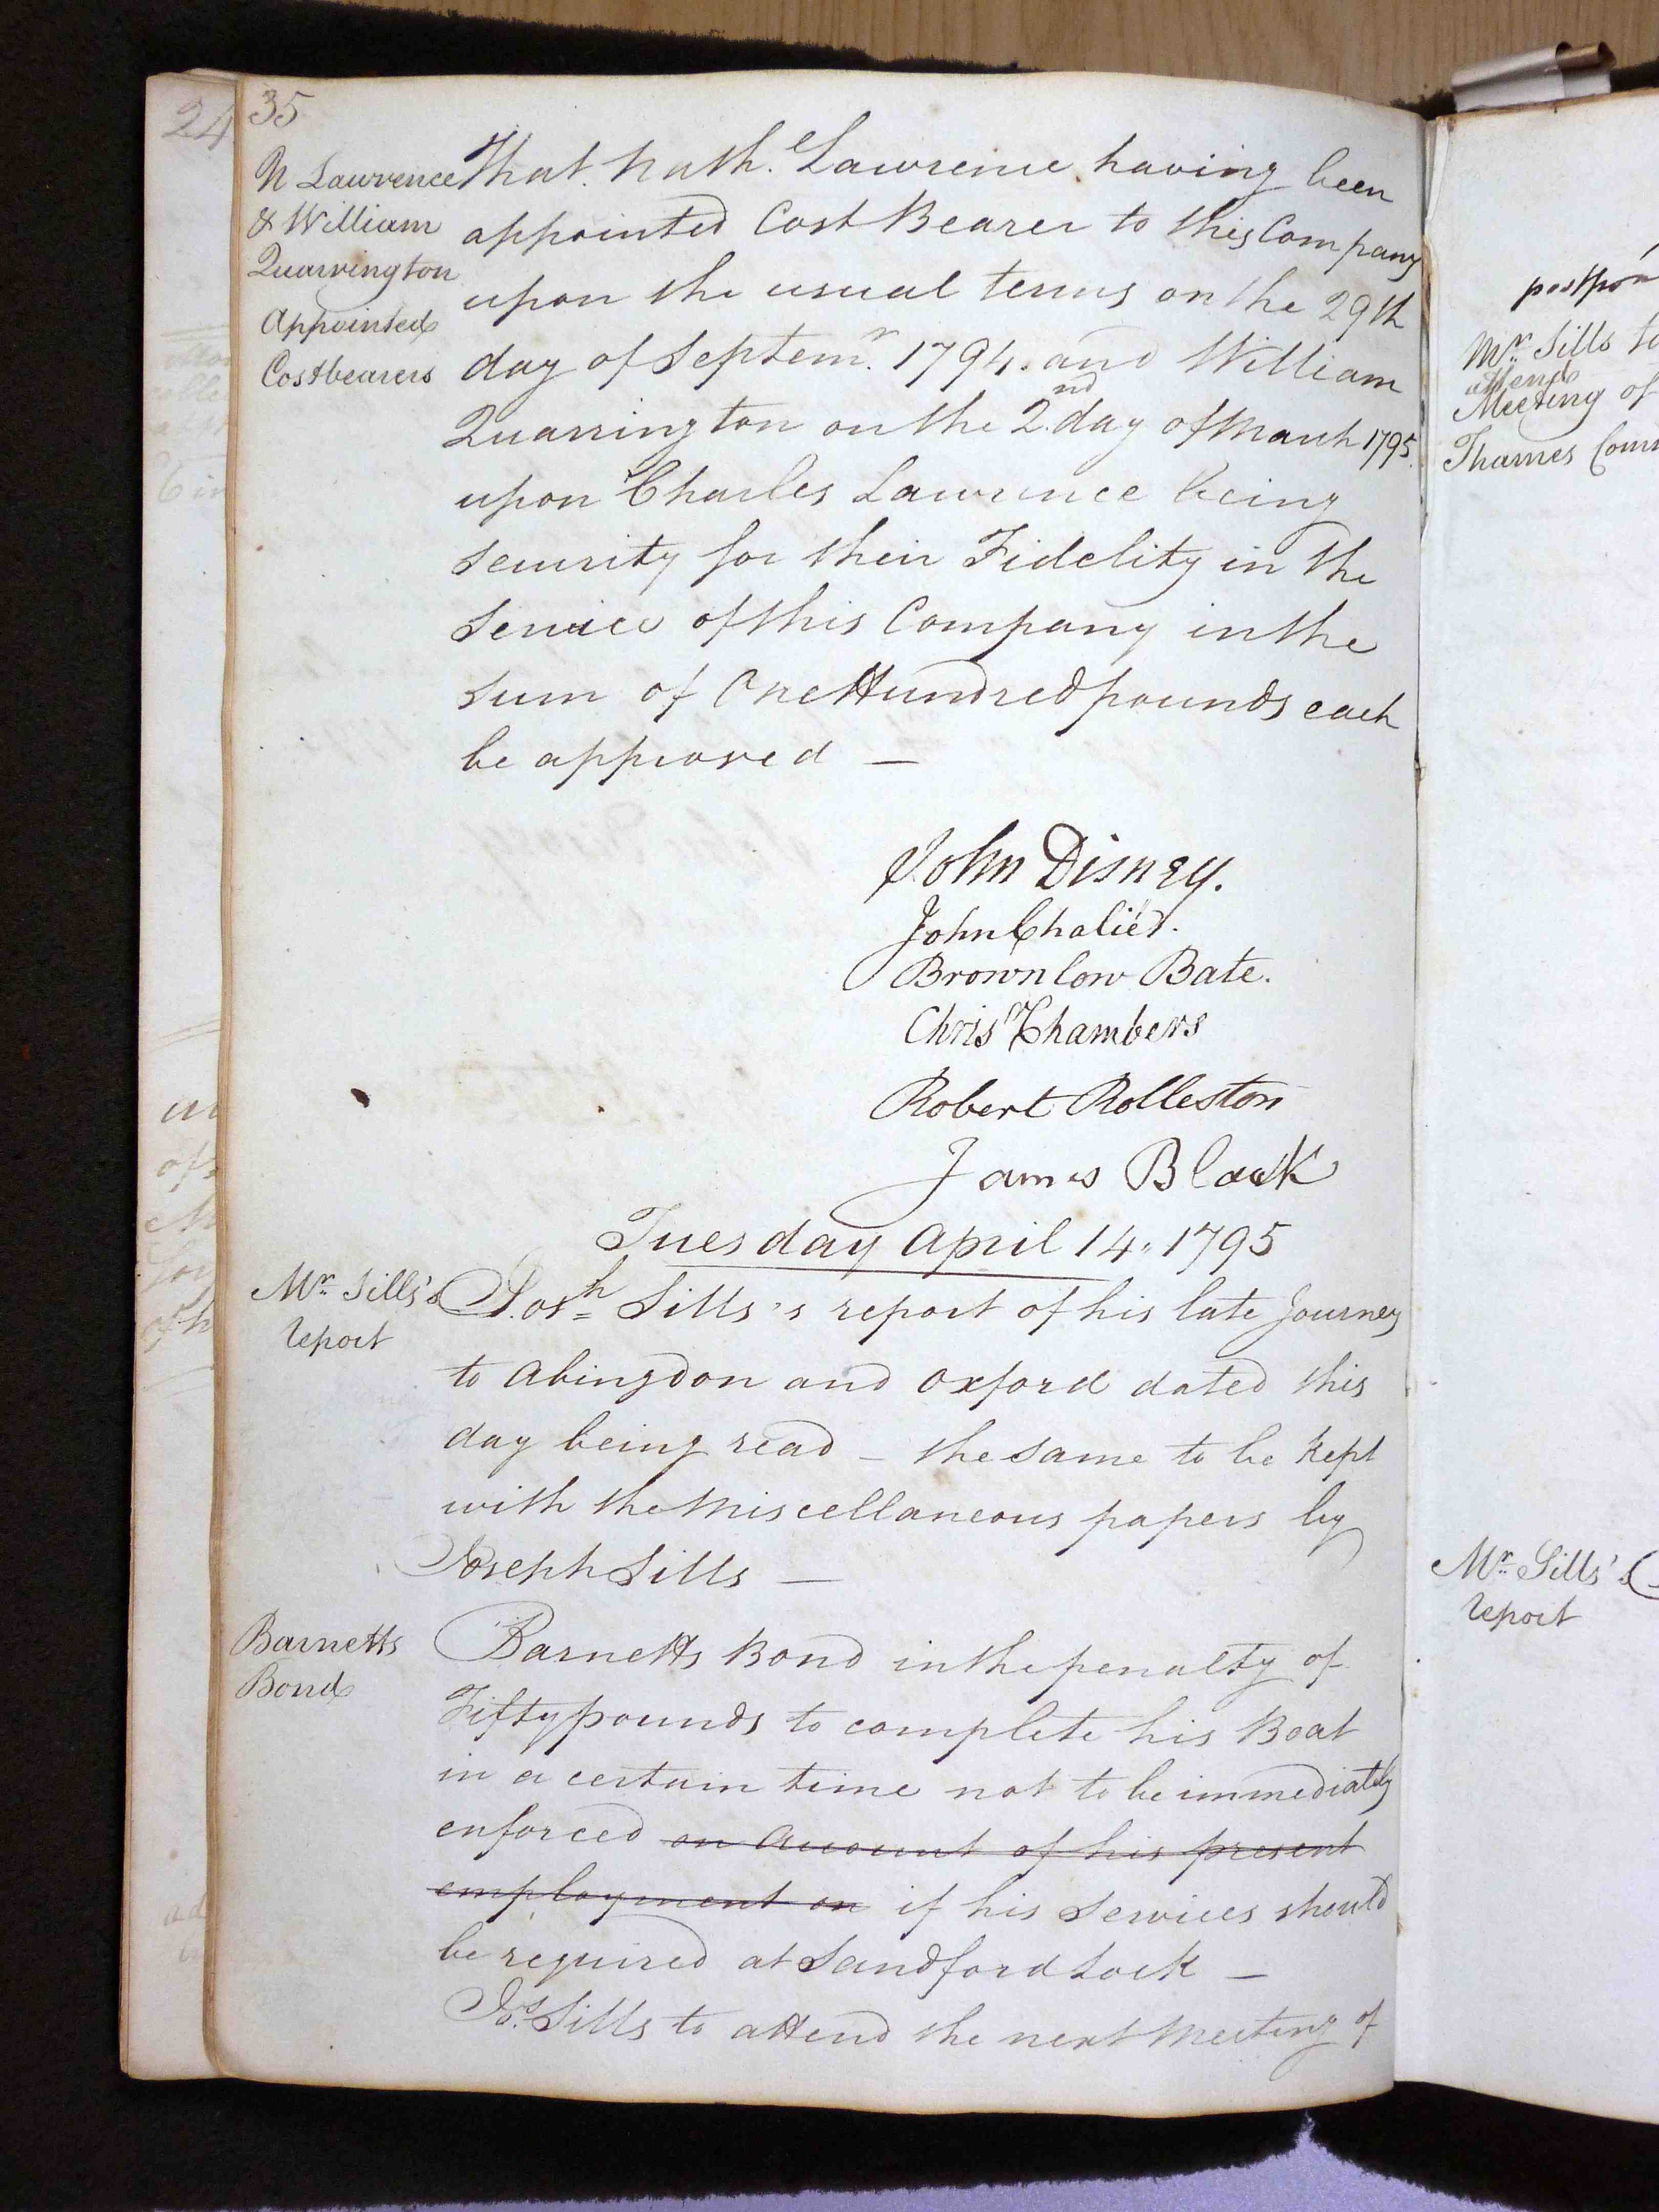 24
35
N Lawrence
& William
Quarrington
Appointed
Costbearers
That. Nath.^e Lawrence having been
appointed Cost Bearer to this Company
upon the usual terms on the 29th
day of Septem^r. 1794. and William
Quarrington on the 2.^nd day of March 1795.
upon Charles Lawrence being
security for their Fidelity in the
Service of this Company in the
sum of One Hundred pounds each
be approved —
John Disney.
John Chalié.
Brownlow Bate.
Chris^r Chambers
Robert Rolleston
James Black
Tuesday April 14. 1795
Mr. Sills's
report
Jos^h Sills's report of his late Journey
to Abingdon and Oxford dated this
day being read – the same to be kept
with the Miscellaneous papers by
Joseph Sills —
Barnetts
Bond
Barnetts Bond in the penalty of
Fifty pounds to complete his Boat
in a certain time not to be immediately
enforced on account of his present
employment on if his services should
be required at Sandford Lock —
Jo.^s Sills to attend the next Meeting of
Mr. Sills to
attend
Meeting of
Thames
Mr. Sills's
report